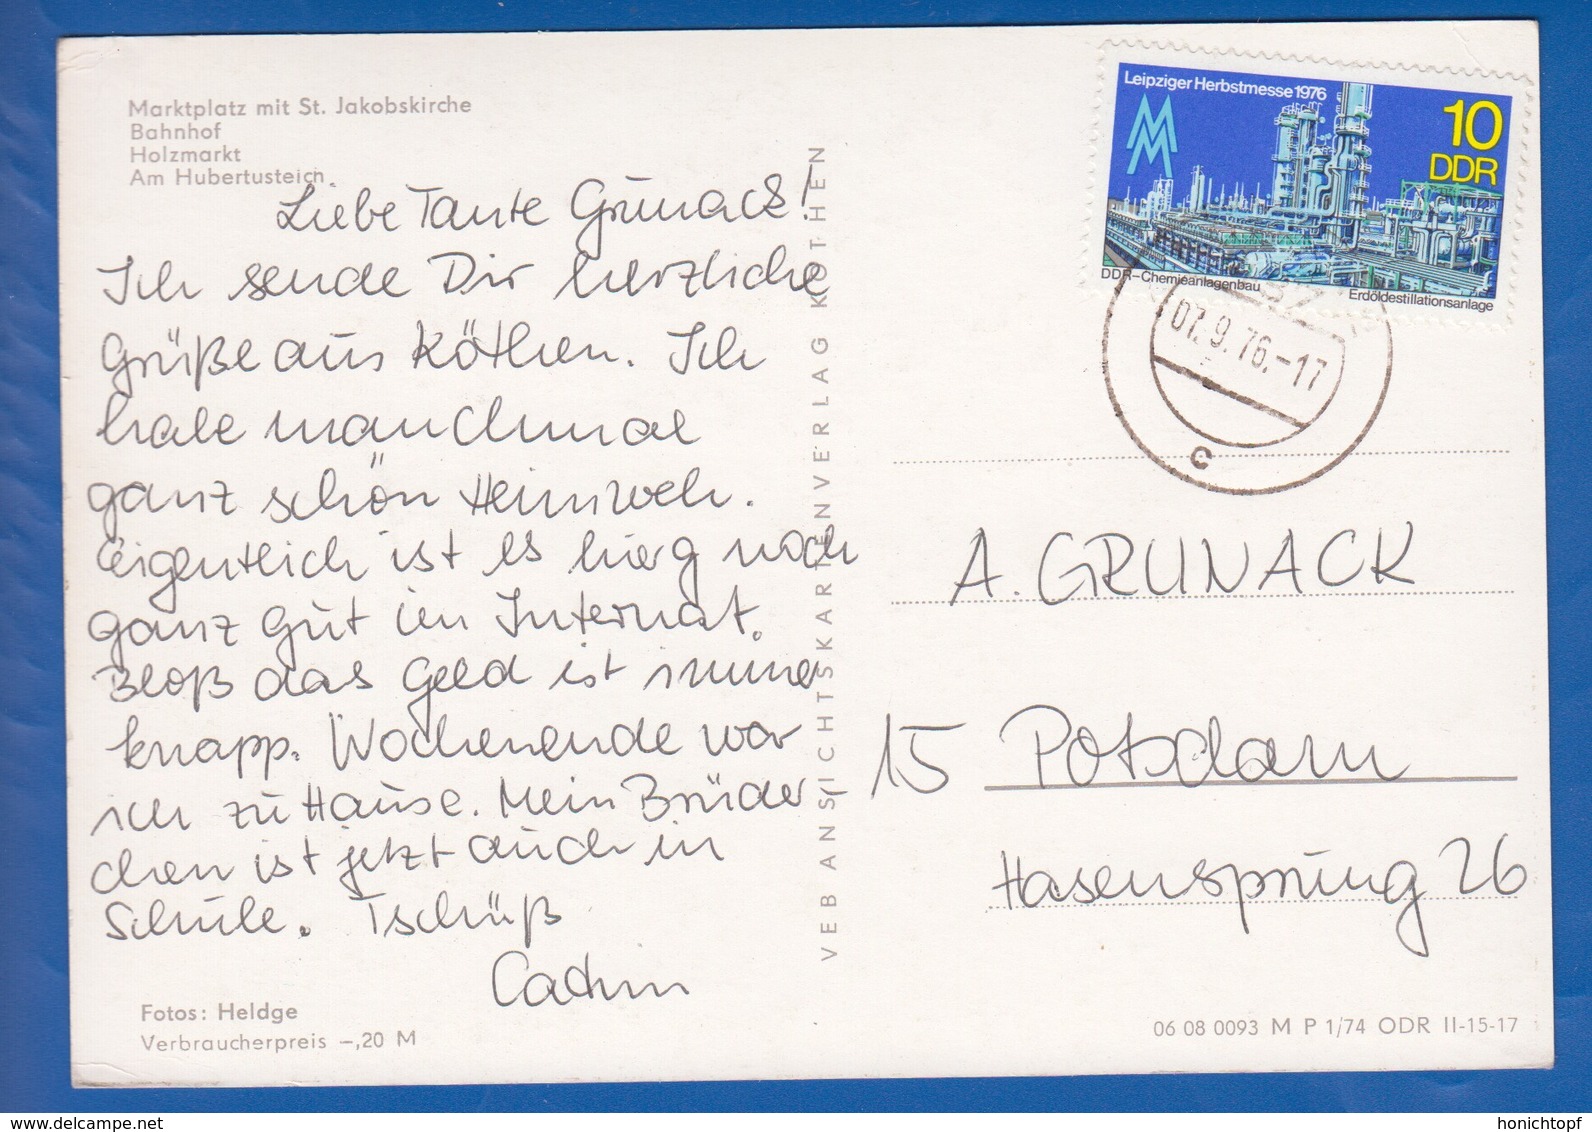 Marktplatz mit St. Jakobskirche
Bahnhof
Holzmarkt
Am Hubertusteich
Liebe Tante Grunack!
Ich sende Dir herzliche
Grüße aus Köthen. Ich
habe manchmal
ganz schön Heimweh.
Eigentlich ist es hier noch
ganz gut im Internat.
Bloß das Geld ist immer
knapp. Wochenende war
ich zu Hause. Mein Brüder-
chen ist jetzt auch in
Schule. Tschüß
Cathrin
Fotos: Heldge
Verbraucherpreis –,20 M
VEB ANSICHTSKARTENVERLAG KÖTHEN
Leipziger Herbstmesse 1976
MM
10
DDR
DDR–Chemieanlagenbau
Erdöldestillationsanlage
07.9.76.–17
c
A. GRUNACK
15 Potsdam
Hasensprung 26
06 08 0093 M P 1/74 ODR II-15-17
honichtopf
www.delcampe.net